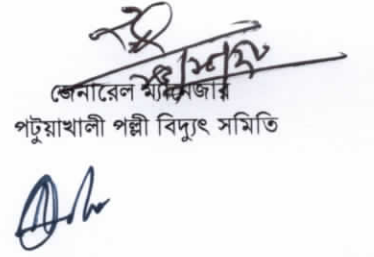 জেনারেল ম্যানেজার
পটুয়াখালী পল্লী বিদ্যুৎ সমিতি